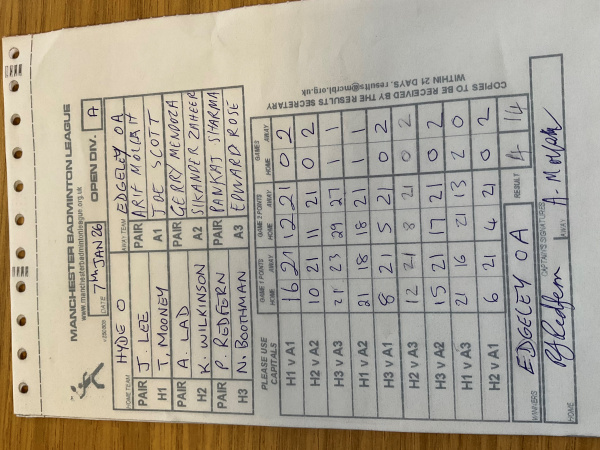 MANCHESTER BADMINTON LEAGUE
www.manchesterbadmintonleague.org.uk
DATE 7th JAN 26 OPEN DIV. A
HOME TEAM HYDE O AWAY TEAM EDGELEY OA
PAIR J. LEE PAIR ARIF
H1 T. MOONEY A1 JOE SCOTT
PAIR A. LAD PAIR GERRY MENDOZA
H2 K. WILKINSON A2 SIKANDER ZAHEER
PAIR P. REDFERN PAIR PANKAJ SHARMA
H3 N. BOOTHMAN A3 EDWARD ROSE
PLEASE USE CAPITALS GAME 1 POINTS GAME 2 POINTS GAMES
HOME AWAY HOME AWAY HOME AWAY
H1 V A1 16 21 12 21 0 2
H2 V A2 10 21 11 21 0 2
H3 V A3 21 23 29 27 1 1
H1 V A2 21 18 18 21 1 1
H3 V A1 8 21 5 21 0 2
H2 V A3 12 21 8 21 0 2
H3 V A2 15 21 17 21 0 2
H1 V A3 21 16 21 13 2 0
H2 V A1 6 21 4 21 0 2
WINNERS EDGELEY OA RESULT 4 14
CAPTAINS SIGNATURES
HOME PJ Redfern AWAY A. Mollah
COPIES TO BE RECEIVED BY THE RESULTS SECRETARY
WITHIN 21 DAYS. results@mcrbl.org.uk